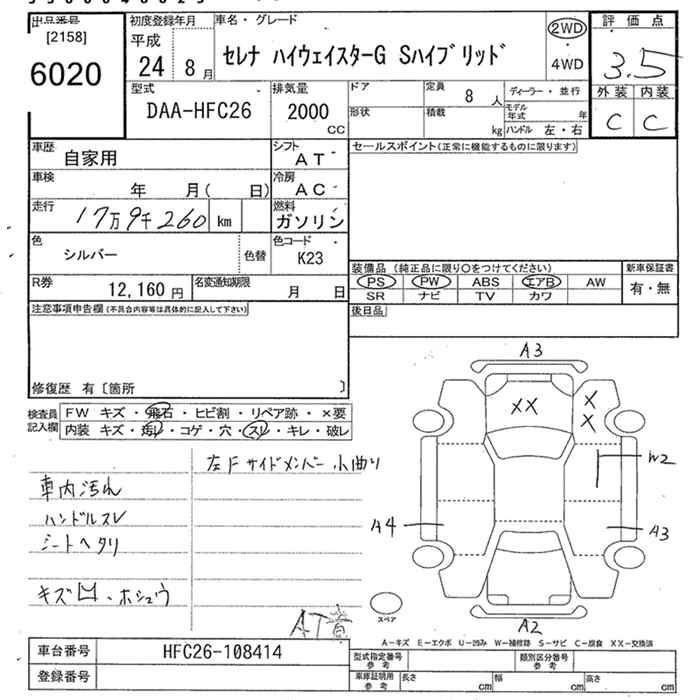 出品番号
[2158]
6020
初度登録年月
平成
24 8月
車名・グレード
セレナ ハイウェイスターG Sハイブリッド
2WD
・
4WD
評価点
3.5
外装 内装
C C
型式
DAA-HFC26
排気量
2000
CC
ドア
形状
定員
8人
積載
kg
ディーラー・並行
モデル年式 年
ハンドル 左・右
車歴
自家用
シフト
AT
セールスポイント(正常に機能するものに限ります)
車検
年 月( 日)
冷房
AC
走行
17万9千260 km
燃料
ガソリン
色
シルバー
色替
色コード
K23
R券
12,160円
名変通知期限
月 日
装備品 (純正品に限り○をつけてください)
PS PW ABS エアB AW
SR ナビ TV カワ
新車保証書
有・無
注意事項申告欄(不具合内容等は具体的に記入して下さい)
後日品
修復歴 有〔箇所 〕
検査員記入欄
FW キズ・飛石・ヒビ割・リペア跡・×要
内装 キズ・汚レ・コゲ・穴・スレ・キレ・破レ
左Fサイドメンバー 小曲り
車内汚れ
ハンドルスレ
シートヘタリ
キズ凹、ホシュウ
AT音
A3
XX
X
X
W2
A4
A3
A2
スペア
A-キズ E-エクボ U-凹み W-補修跡 S-サビ C-腐食 XX-交換済
車台番号
HFC26-108414
登録番号
型式指定番号
参考
類別区分番号
参考
車庫証明用
参考
長さ cm
幅 cm
高さ cm